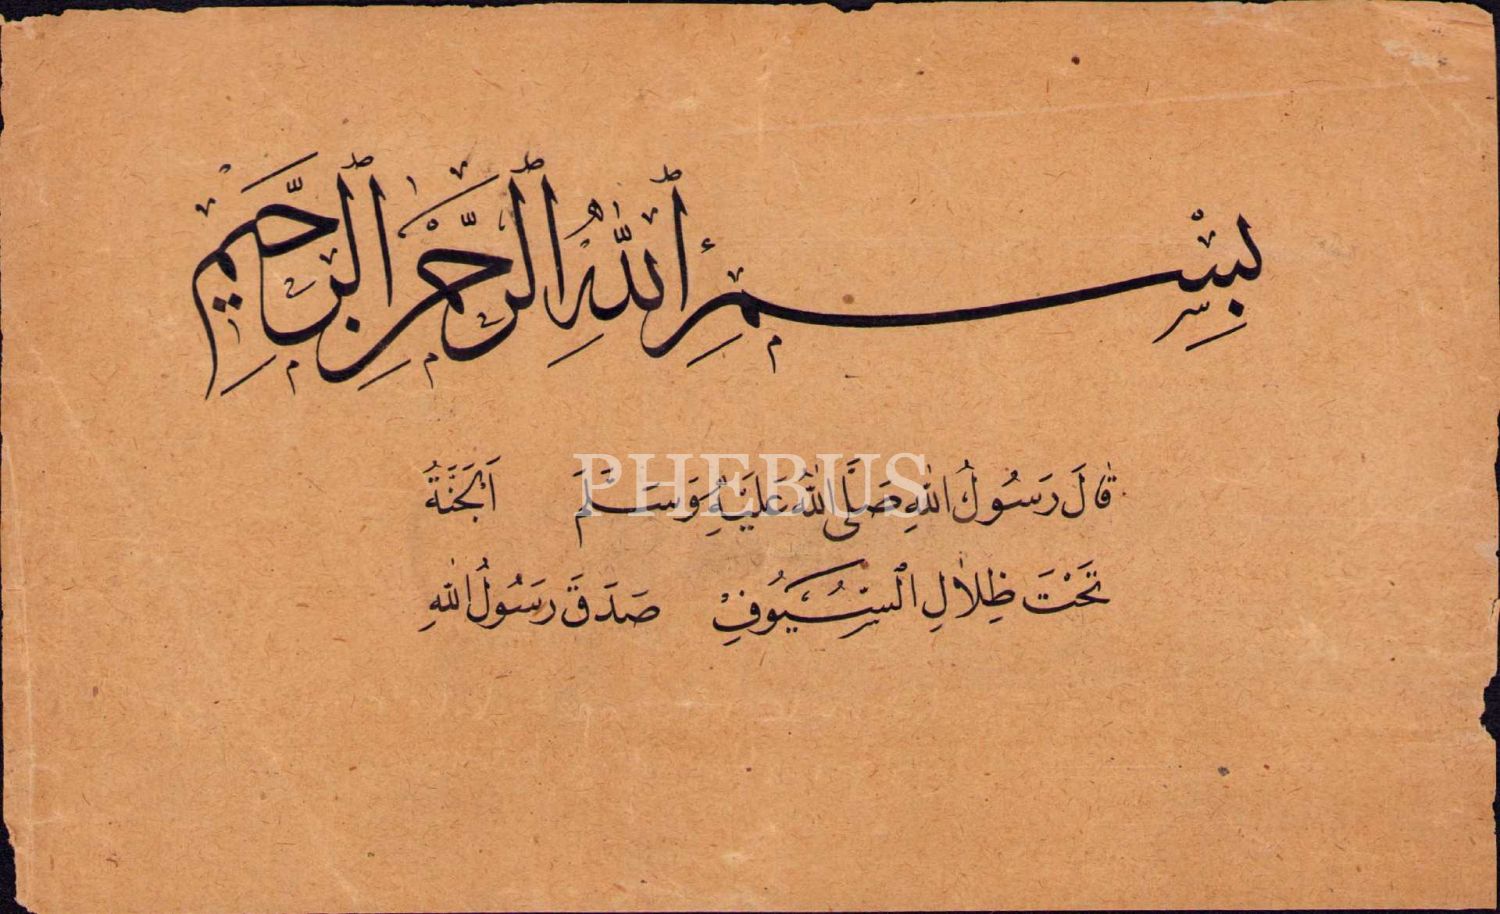 بِسْمِ ٱللّٰهِ ٱلرَّحْمٰنِ ٱلرَّحِيمِ
PHEBUS
قَالَ رَسُولُ اللّٰهِ صَلَّى اللّٰهُ عَلَيْهِ وَسَلَّمَ اَلْجَنَّةُ
تَحْتَ ظِلَالِ ٱلسُّيُوفِ صَدَقَ رَسُولُ اللّٰهِ